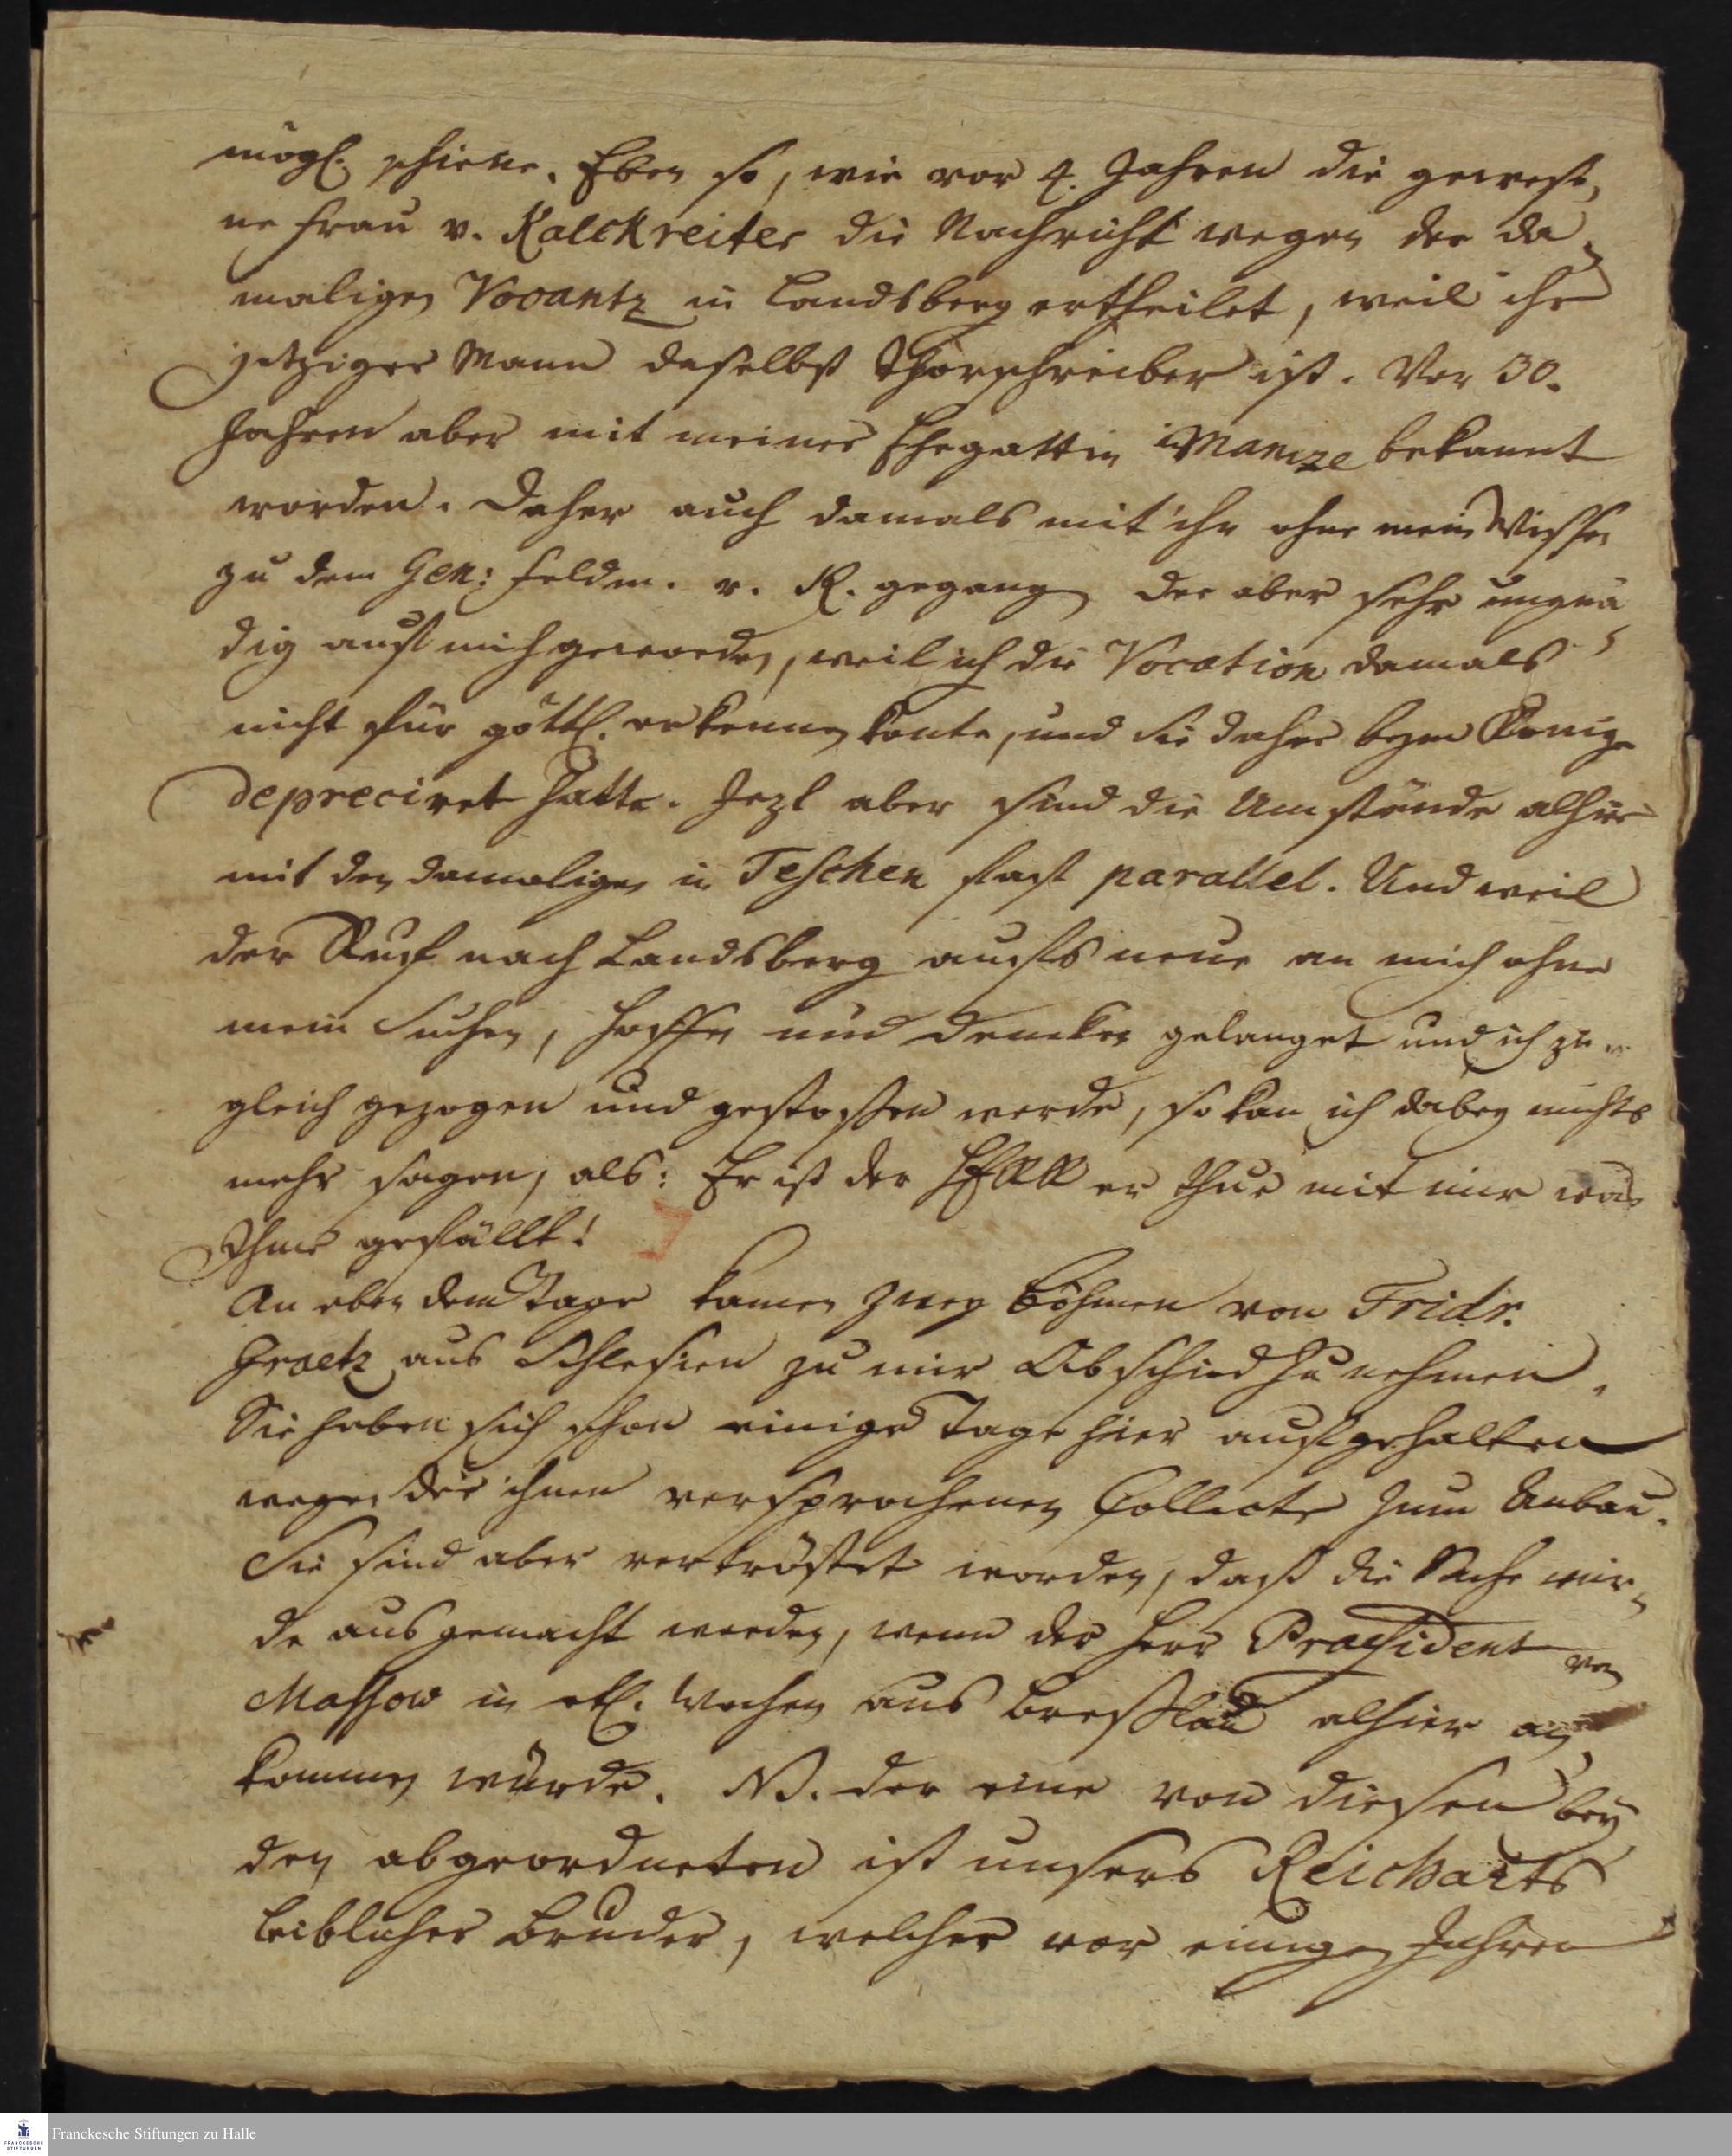 mögl. schiene. Eben so, wie vor 4. Jahren die gewese,
ne Frau v. Kalckreiter die Nachricht wegen der da,
maligen Vocantz in Landsberg ertheilet, weil ihr
jetziger Mann daselbst Thorschreiber ist. Vor 30.
Jahren aber mit meiner Ehegattin bekannt
worden. Daher auch damals mit ihr ohne mein Wissen
zu dem Gen: Feldm. v. K. gegangen der aber sehr ungnä,
dig auf mich geworden, weil ich die Vocation damals
nicht für göttl. erkennen konte, und sie daher beym Könige
depreciret hatte. Jezt aber sind die Umstände alhier
mit den damaligen in Teschen fast parallel. Und weil
der Ruf nach Landsberg aufs neue an mich ohne
mein Suchen, Hoffen und Dencken gelanget und ich zu,
gleich gezogen und gestossen werde, so kan ich dabey nichts
mehr sagen, als: Er ist der HERR er thue mit mir was
Ihme gefällt!
An eben dem Tage kamen zwey Böhmen von Fridr.
Graetz aus Schlesien zu mir Abschied zu nehmen.
Sie haben sich schon einige Tage hier aufgehalten
wegen der ihnen versprochenen Collecte zum Anbau.
Sie sind aber vertröstet worden, daß die Sache wür,
de ausgemacht werden, wenn der Herr Praesident von
Massow in etl. Wochen aus Bresslau alhier an,
kommen würde. NB. der eine von diesen bey
den abgeordneten ist unsers Reicharts
leiblicher Bruder, welcher vor einigen Jahren
Franckesche Stiftungen zu Halle